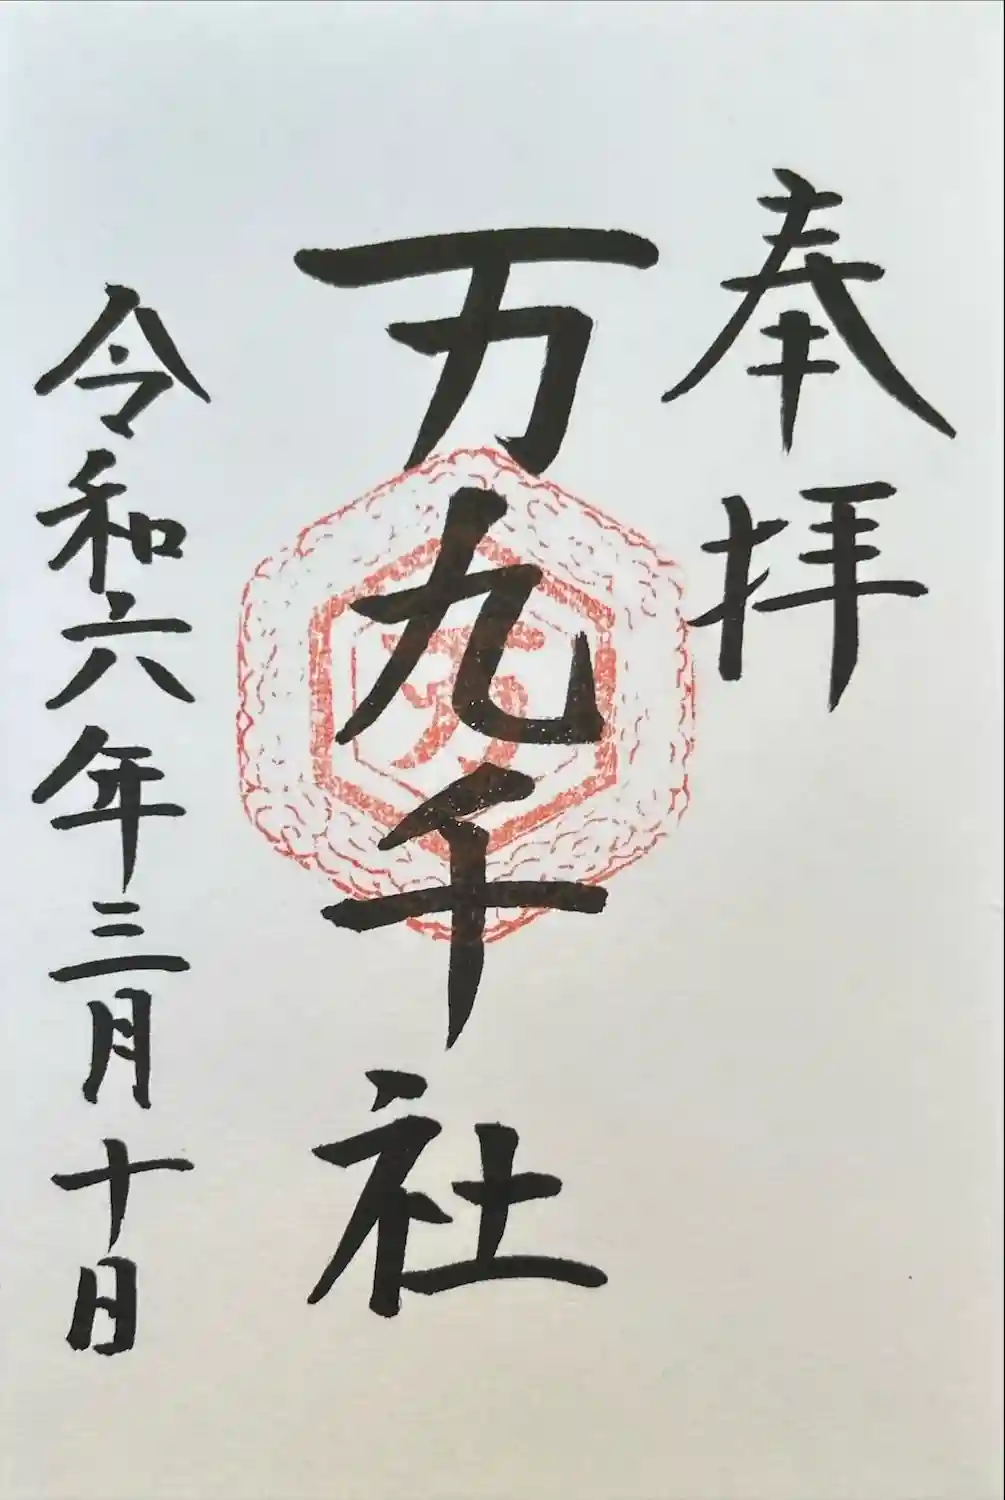 奉拝
万九千社
令和六年三月十日